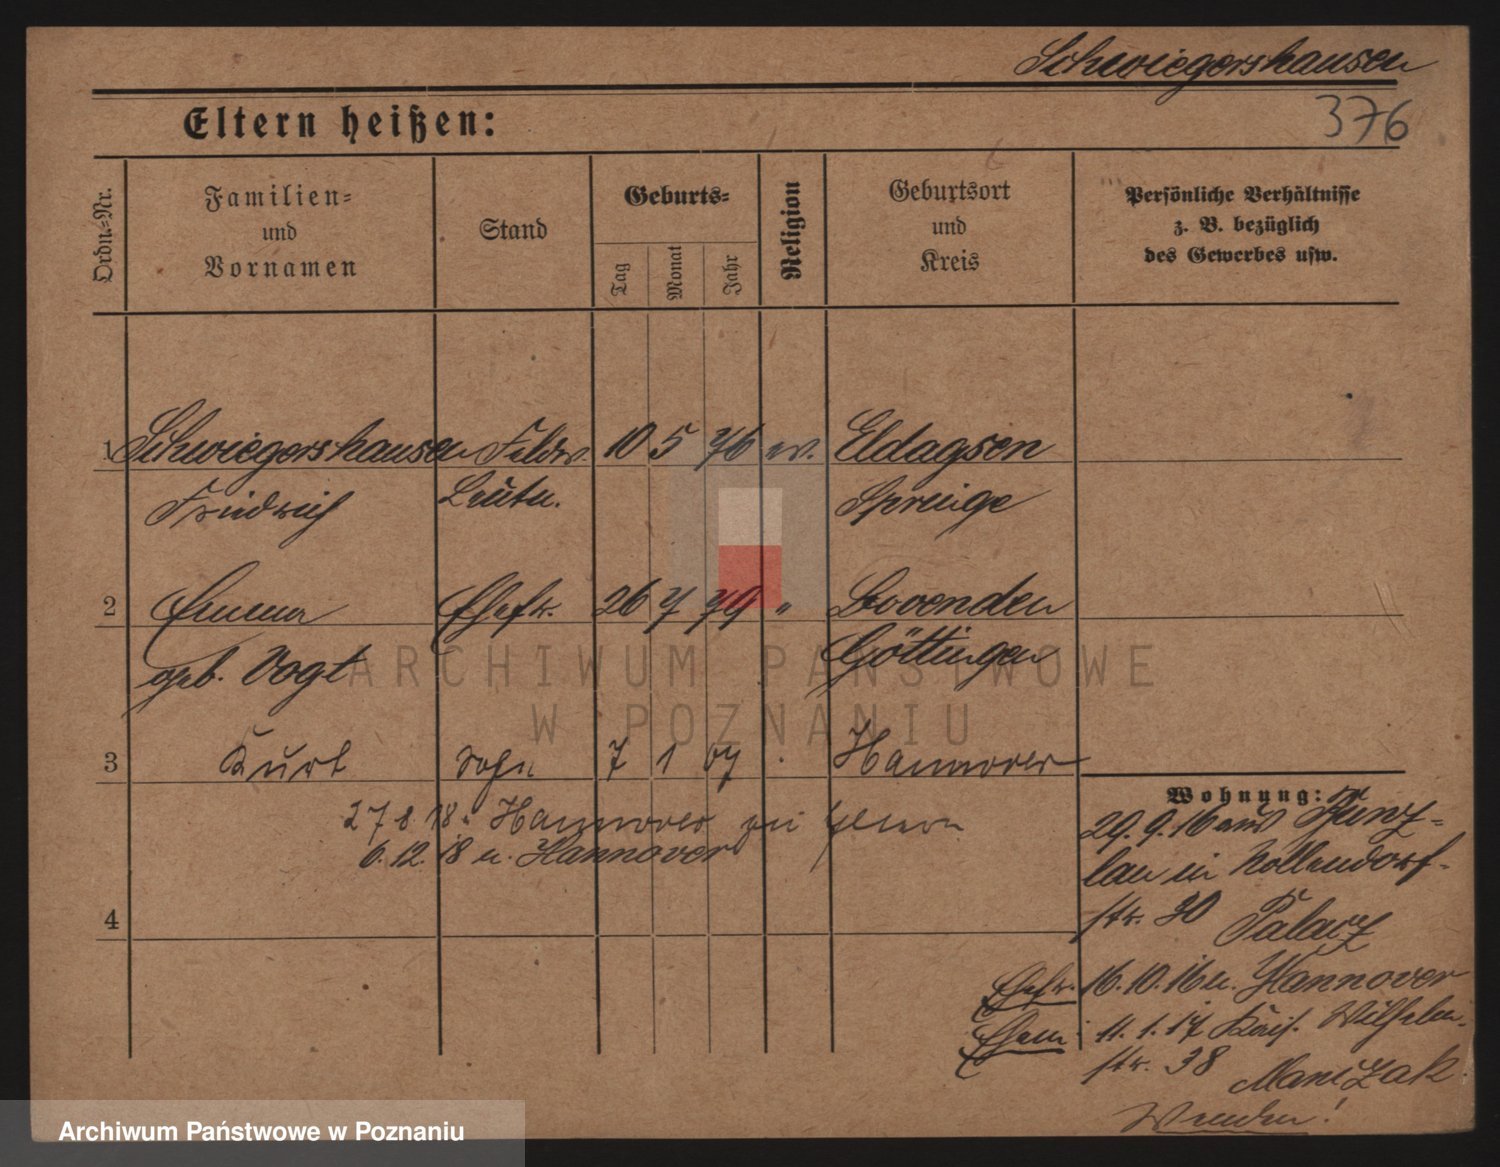 Schwiegershausen
376
Eltern heißen:
Ordn.-Nr.
Familien-
und
Vornamen
Stand
Geburts-
Tag
Monat
Jahr
Religion
Geburtsort
und
Kreis
Persönliche Verhältnisse
z. B. bezüglich
des Gewerbes usw.
1 Schwiegershausen Feldw. 10 5 76 ev. Eldagsen
Friedrich Leutn. Springe
2 Emma Ehefr. 26 7 79 " Bovenden
geb. Vogt Göttingen
3 Kurt Sohn 7 1 07 Hannover
27 8 18. Hannover
6. 12. 18 n. Hannover
4
Wohnung:
29. 9. 16 aus
lau in Kollendorf-
str. 30 Palacz
Ehefr. 16. 10. 16 n. Hannover
Ehem. 11. 1. 17 Kais. Wilhelm-
str. 38 Manczak
Wenden!
ARCHIWUM PAŃSTWOWE
W POZNANIU
Archiwum Państwowe w Poznaniu